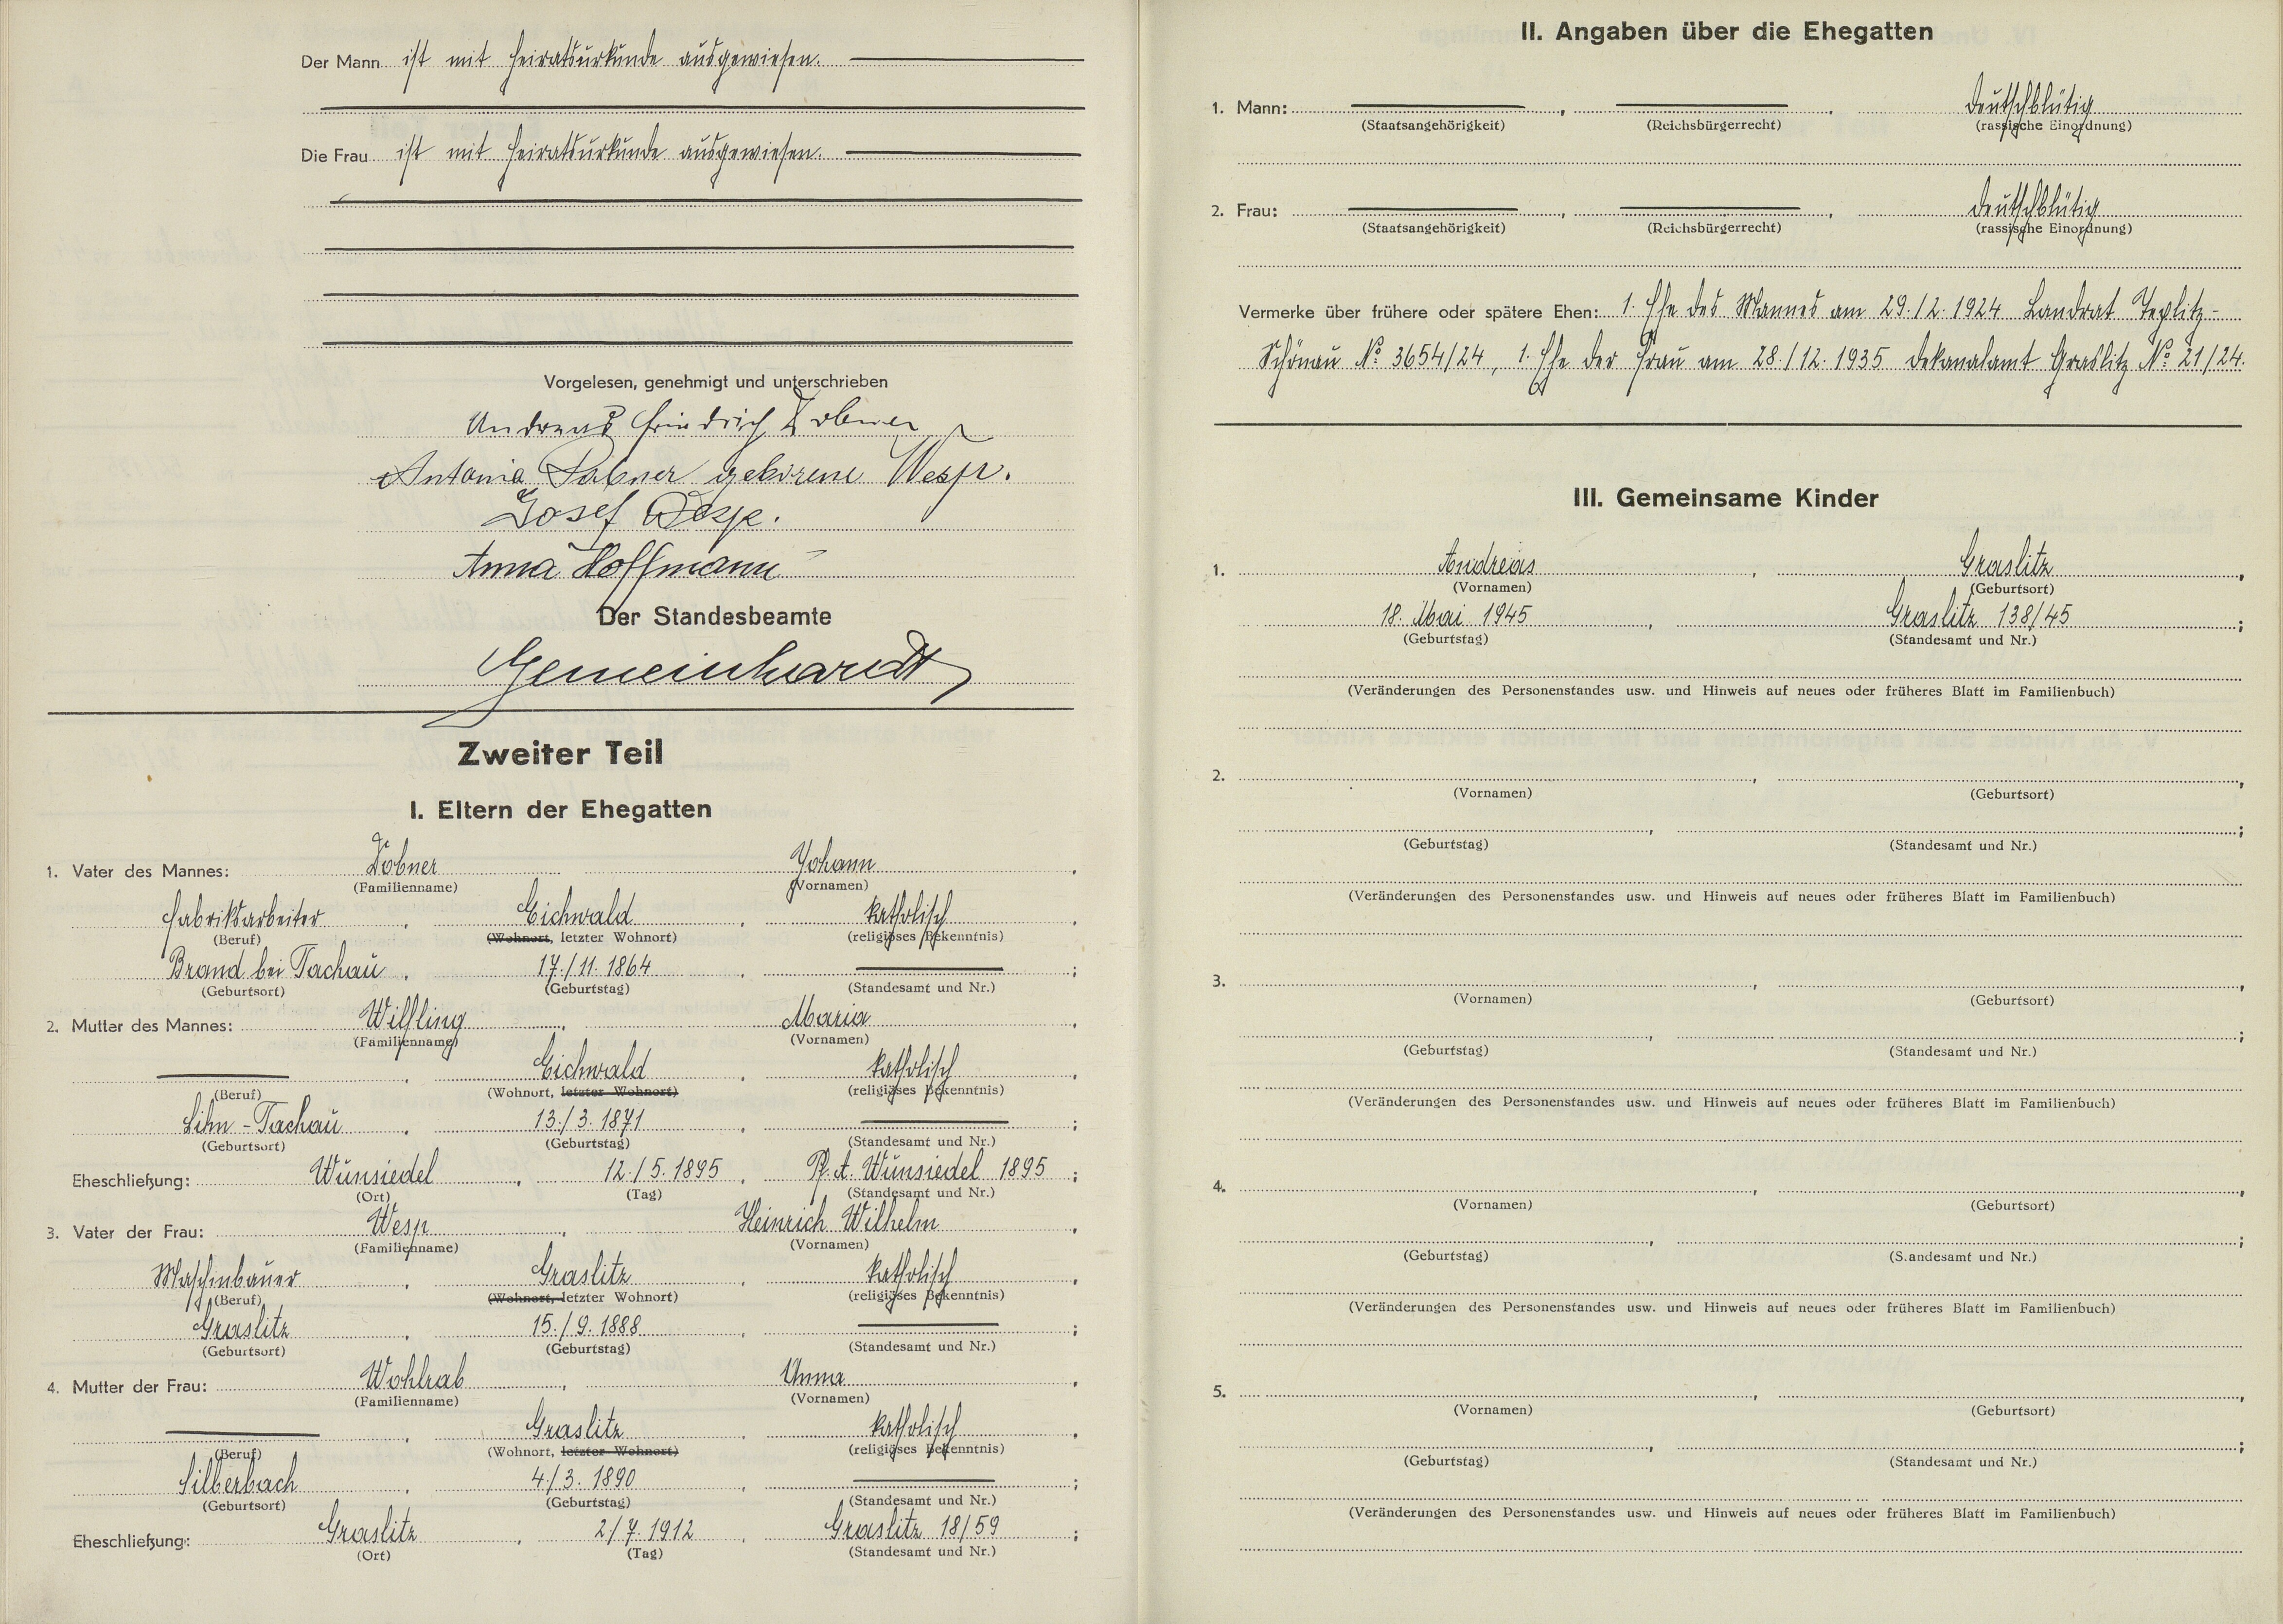 Der Mann ist mit Heiratsurkunde ausgewiesen.
Die Frau ist mit Heiratsurkunde ausgewiesen.
Vorgelesen, genehmigt und unterschrieben
Andreas Friedrich Döbner
Antonia Döbner geborene Wesp.
Josef Wesp.
Anna Hoffmann
Der Standesbeamte
Gemeinhardt
Zweiter Teil
I. Eltern der Ehegatten
1. Vater des Mannes: Döbner Johann
(Familienname) (Vornamen)
Fabriksarbeiter, Eichwald, katholisch,
(Beruf) (Wohnort, letzter Wohnort) (religiöses Bekenntnis)
Brand bei Tachau, 17./11. 1864, ;
(Geburtsort) (Geburtstag) (Standesamt und Nr.)
2. Mutter des Mannes: Wilfling, Maria,
(Familienname) (Vornamen)
, Eichwald, katholisch,
(Beruf) (Wohnort, letzter Wohnort) (religiöses Bekenntnis)
Lihn - Tachau, 13./3. 1871, ;
(Geburtsort) (Geburtstag) (Standesamt und Nr.)
Eheschließung: Wunsiedel, 12./5. 1895, Pf. A. Wunsiedel 1895;
(Ort) (Tag) (Standesamt und Nr.)
3. Vater der Frau: Wesp, Heinrich Wilhelm,
(Familienname) (Vornamen)
Maschinbauer, Graslitz, katholisch,
(Beruf) (Wohnort, letzter Wohnort) (religiöses Bekenntnis)
Graslitz, 15./9. 1888, ;
(Geburtsort) (Geburtstag) (Standesamt und Nr.)
4. Mutter der Frau: Wohlrab, Anna,
(Familienname) (Vornamen)
, Graslitz, katholisch,
(Beruf) (Wohnort, letzter Wohnort) (religiöses Bekenntnis)
Silberbach, 4./3. 1890, ;
(Geburtsort) (Geburtstag) (Standesamt und Nr.)
Eheschließung: Graslitz, 2./7. 1912, Graslitz 18/59;
(Ort) (Tag) (Standesamt und Nr.)
II. Angaben über die Ehegatten
1. Mann: , , deutschblütig
(Staatsangehörigkeit) (Reichsbürgerrecht) (rassische Einordnung)
2. Frau: , , deutschblütig
(Staatsangehörigkeit) (Reichsbürgerrecht) (rassische Einordnung)
Vermerke über frühere oder spätere Ehen: 1. Ehe des Mannes am 29./2. 1924 Landrat Teplitz-
Schönau No. 3654/24, 1. Ehe der Frau am 28./12. 1935 Dekanalamt Graslitz No. 21/24.
III. Gemeinsame Kinder
1. Andreas, Graslitz,
(Vornamen) (Geburtsort)
18. Mai 1945, Graslitz 138/45;
(Geburtstag) (Standesamt und Nr.)
(Veränderungen des Personenstandes usw. und Hinweis auf neues oder früheres Blatt im Familienbuch)
2. , ,
(Vornamen) (Geburtsort)
, ;
(Geburtstag) (Standesamt und Nr.)
(Veränderungen des Personenstandes usw. und Hinweis auf neues oder früheres Blatt im Familienbuch)
3. , ,
(Vornamen) (Geburtsort)
, ;
(Geburtstag) (Standesamt und Nr.)
(Veränderungen des Personenstandes usw. und Hinweis auf neues oder früheres Blatt im Familienbuch)
4. , ,
(Vornamen) (Geburtsort)
, ;
(Geburtstag) (S.andesamt und Nr.)
(Veränderungen des Personenstandes usw. und Hinweis auf neues oder früheres Blatt im Familienbuch)
5. , ,
(Vornamen) (Geburtsort)
, ;
(Geburtstag) (Standesamt und Nr.)
(Veränderungen des Personenstandes usw. und Hinweis auf neues oder früheres Blatt im Familienbuch)